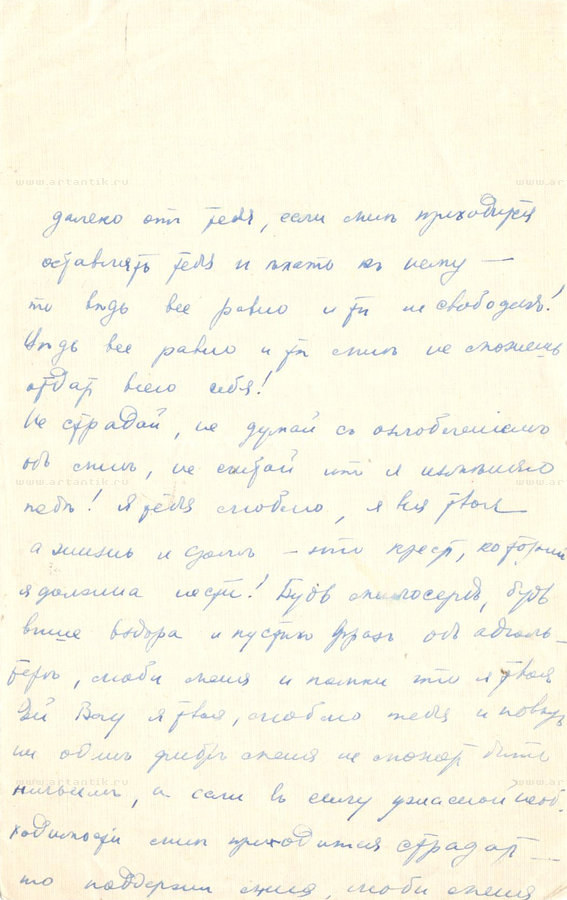 www.artantik.ru
далеко отъ тебя, если мнѣ приходится
оставлять тебя и ѣхать къ нему —
то вѣдь все равно и ты не свободенъ!
Вѣдь все равно и ты мнѣ не можешь
отдать всего себя!
Не страдай, не думай съ озлобленіемъ
обо мнѣ, не считай что я измѣняю
тебѣ! Я тебя люблю, я вся твоя
а жизнь и долгъ — это крестъ, который
я должна нести! Будь милосердъ, будь
выше вздора и пустыхъ фразъ объ адюль-
терѣ, люби меня и помни что я твоя
Ей Богу я твоя, люблю тебя и
ни одинъ меня не можетъ быть
ничьимъ, а если въ силу ужасной необ-
ходимости мнѣ приходится страдать —
то поддержи меня, люби меня